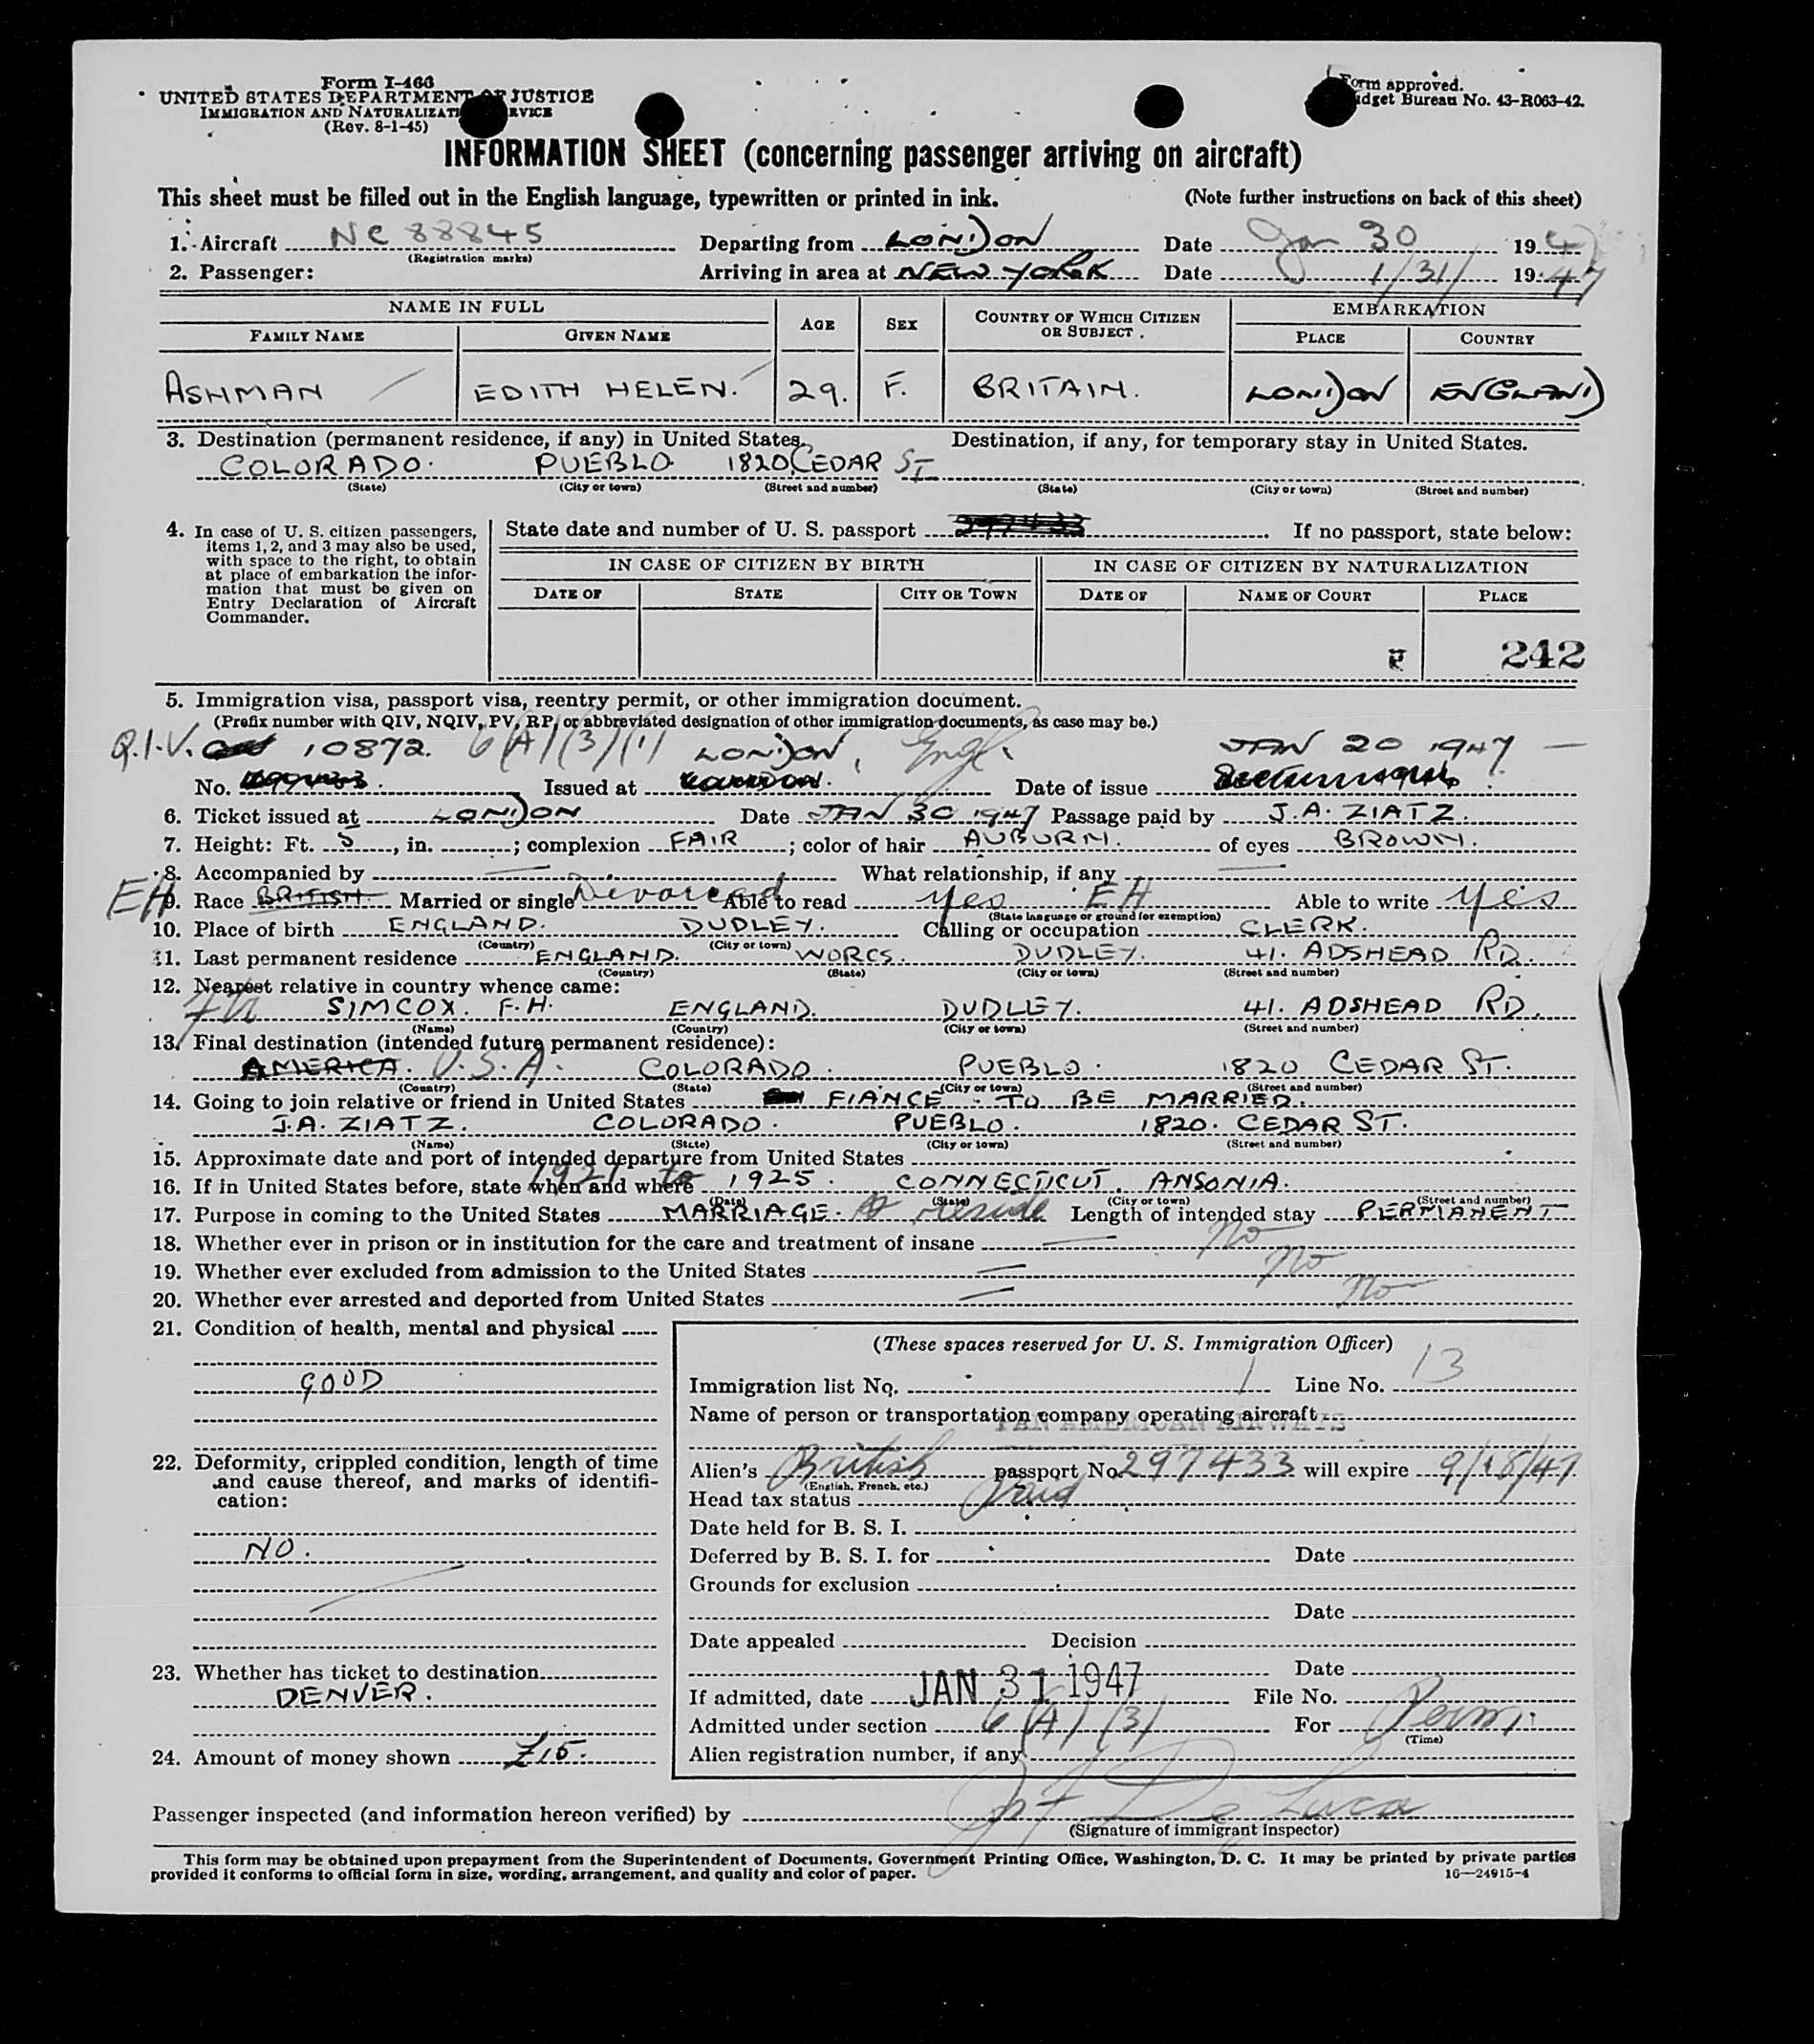 Form I-466
UNITED STATES DEPARTMENT OF JUSTICE
IMMIGRATION AND NATURALIZATION SERVICE
(Rev. 8-1-45)
Form approved.
Budget Bureau No. 43-R063-42.
INFORMATION SHEET (concerning passenger arriving on aircraft)
This sheet must be filled out in the English language, typewritten or printed in ink. (Note further instructions on back of this sheet)
1. Aircraft NC 88845 Departing from LONDON Date Jan 30 1947
(Registration marks)
2. Passenger: Arriving in area at NEW YORK Date 1/31/ 1947
NAME IN FULL AGE SEX COUNTRY OF WHICH CITIZEN OR SUBJECT. EMBARKATION
FAMILY NAME GIVEN NAME PLACE COUNTRY
ASHMAN EDITH HELEN. 29. F. BRITAIN. LONDON ENGLAND
3. Destination (permanent residence, if any) in United States. Destination, if any, for temporary stay in United States.
COLORADO. PUEBLO. 1820, CEDAR ST
(State) (City or town) (Street and number) (State) (City or town) (Street and number)
4. In case of U. S. citizen passengers, items 1, 2, and 3 may also be used, with space to the right, to obtain at place of embarkation the information that must be given on Entry Declaration of Aircraft Commander.
State date and number of U. S. passport 297433 If no passport, state below:
IN CASE OF CITIZEN BY BIRTH IN CASE OF CITIZEN BY NATURALIZATION
DATE OF STATE CITY OR TOWN DATE OF NAME OF COURT PLACE
242
5. Immigration visa, passport visa, reentry permit, or other immigration document.
(Prefix number with QIV, NQIV, PV, RP, or abbreviated designation of other immigration documents, as case may be.)
Q.I.V. 10872. 6(A)(3)(1) LONDON, Engl. JAN 20 1947
No. Issued at LONDON. Date of issue
6. Ticket issued at LONDON Date JAN 30 1947 Passage paid by J.A. ZIATZ.
7. Height: Ft. 5, in. ; complexion FAIR ; color of hair AUBURN. of eyes BROWN.
8. Accompanied by — What relationship, if any —
EH 9. Race BRITISH. Married or single Devorced Able to read yes EH Able to write yes
(State language or ground for exemption)
10. Place of birth ENGLAND. DUDLEY. Calling or occupation CLERK.
(Country) (City or town)
11. Last permanent residence ENGLAND. WORCS. DUDLEY. 41. ADSHEAD RD.
(Country) (State) (City or town) (Street and number)
12. Nearest relative in country whence came:
SIMCOX. F.H. ENGLAND. DUDLEY. 41. ADSHEAD RD.
(Name) (Country) (City or town) (Street and number)
13. Final destination (intended future permanent residence):
AMERICA. U.S.A. COLORADO. PUEBLO. 1820 CEDAR ST.
(Country) (State) (City or town) (Street and number)
14. Going to join relative or friend in United States FIANCE. TO BE MARRIED.
J.A. ZIATZ. COLORADO. PUEBLO. 1820. CEDAR ST.
(Name) (State) (City or town) (Street and number)
15. Approximate date and port of intended departure from United States
16. If in United States before, state when and where 1921 to 1925. CONNECTICUT. ANSONIA.
(Date) (State) (City or town) (Street and number)
17. Purpose in coming to the United States MARRIAGE. & reside Length of intended stay PERMANENT
18. Whether ever in prison or in institution for the care and treatment of insane — no
19. Whether ever excluded from admission to the United States — no
20. Whether ever arrested and deported from United States — no
21. Condition of health, mental and physical
GOOD
22. Deformity, crippled condition, length of time and cause thereof, and marks of identification:
NO.
23. Whether has ticket to destination
DENVER.
24. Amount of money shown £15.
(These spaces reserved for U. S. Immigration Officer)
Immigration list No. 1 Line No. 13
Name of person or transportation company operating aircraft
PAN AMERICAN AIRWAYS
Alien's British passport No. 297433 will expire 9/18/47
(English, French, etc.)
Head tax status Paid
Date held for B. S. I.
Deferred by B. S. I. for Date
Grounds for exclusion
Date
Date appealed Decision
Date
If admitted, date JAN 31 1947 File No.
Admitted under section 6(A)(3) For Perm.
(Time)
Alien registration number, if any
Passenger inspected (and information hereon verified) by De Luca
(Signature of immigrant inspector)
This form may be obtained upon prepayment from the Superintendent of Documents, Government Printing Office, Washington, D. C. It may be printed by private parties
provided it conforms to official form in size, wording, arrangement, and quality and color of paper. 16—24915-4